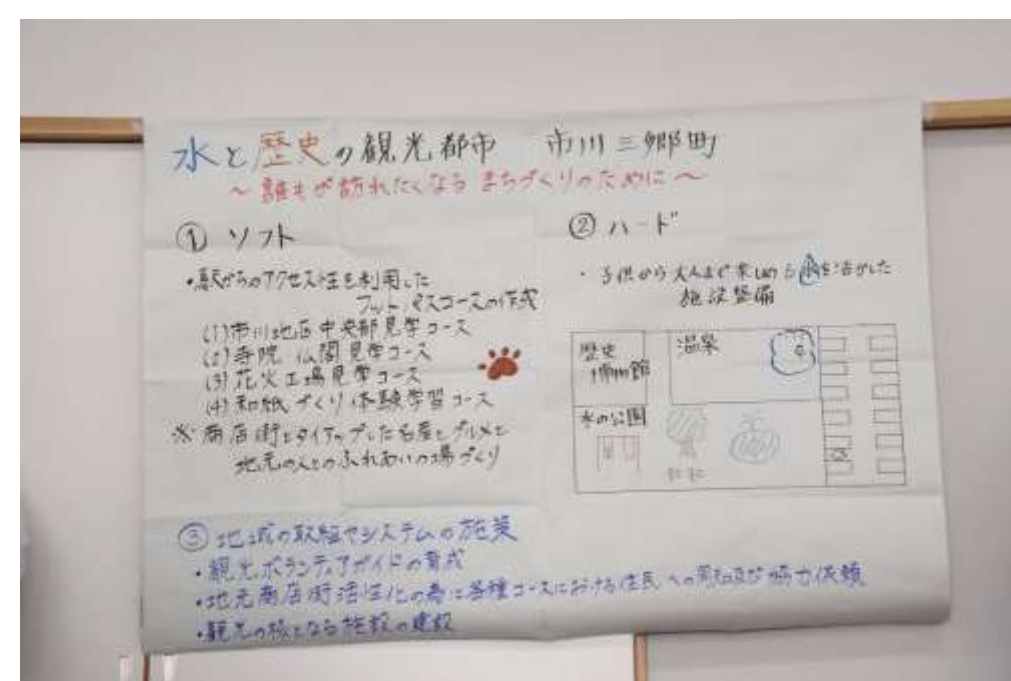 水と歴史の観光都市 市川三郷町
～誰もが訪れたくなる まちづくりのために～
① ソフト
・駅からのアクセス性を利用した
フットパスコースの作成
(1) 市川地区中央部見学コース
(2) 寺院 仏閣見学コース
(3) 花火工場見学コース
(4) 和紙づくり体験学習コース
※ 商店街とタイアップした名産とグルメと
地元の人とのふれあいの場づくり
② ハード
・子供から大人まで楽しめる水を活かした
施設整備
歴史
博物館
温泉
水の公園
③ 地域の取組やシステムの施策
・観光ボランティアガイドの育成
・地元商店街活性化の為に各種コースにおける住民への周知及び協力依頼
・観光の核となる施設の建設